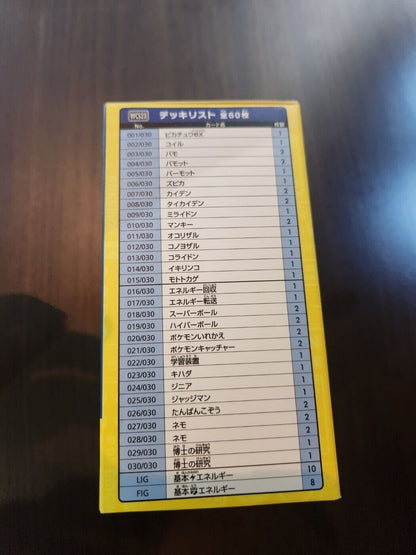 WCS23 デッキリスト 全60枚
No. カード名 枚数
001/030 ピカチュウex 1
002/030 コイル 1
003/030 パモ 2
004/030 パモット 2
005/030 パーモット 1
006/030 ズピカ 1
007/030 カイデン 2
008/030 タイカイデン 2
009/030 ミライドン 1
010/030 マンキー 2
011/030 オコリザル 1
012/030 コノヨザル 1
013/030 コライドン 1
014/030 イキリンコ 1
015/030 モトトカゲ 1
016/030 エネルギー回収 1
017/030 エネルギー転送 1
018/030 スーパーボール 2
019/030 ハイパーボール 2
020/030 ポケモンいれかえ 2
021/030 ポケモンキャッチャー 2
022/030 学習装置 1
023/030 キハダ 1
024/030 ジニア 1
025/030 ジャッジマン 1
026/030 たんぱんこぞう 2
027/030 ネモ
028/030 ネモ
029/030 博士の研究 1
030/030 博士の研究 1
LIG 基本エネルギー 10
FIG 基本エネルギー 8